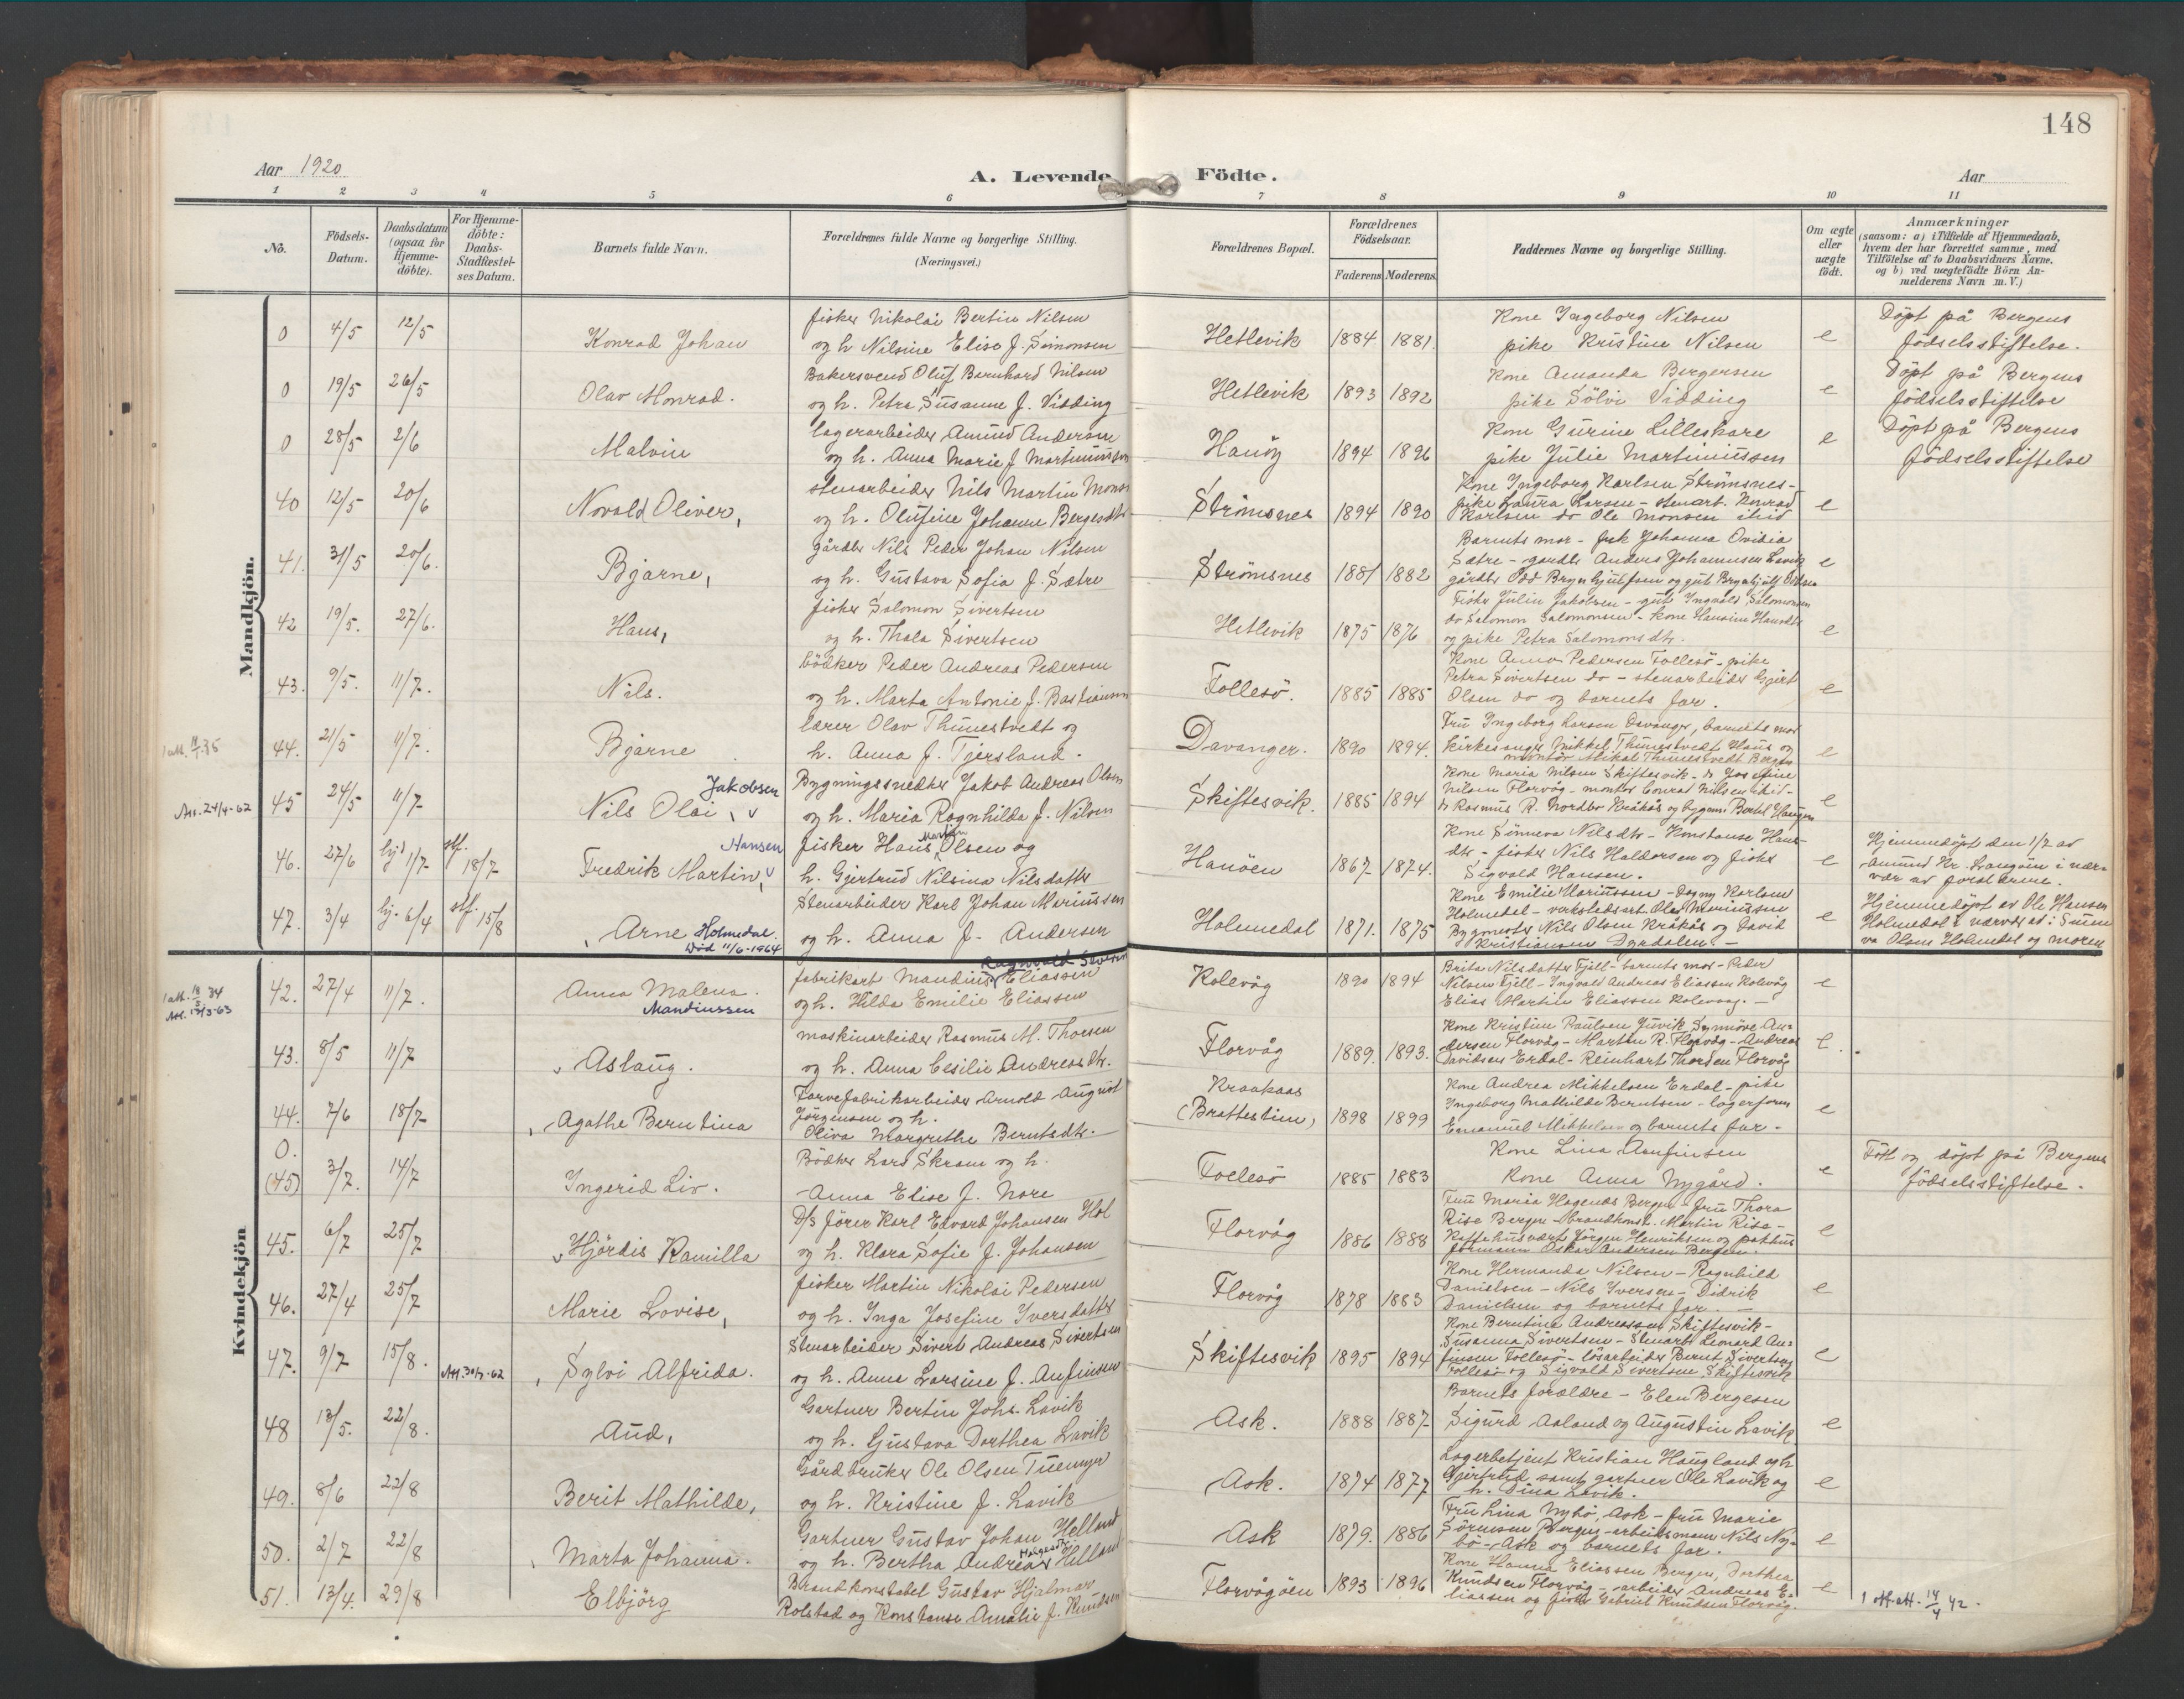 148
Aar 1920
A. Levende Födte.
Aar
1 2 3 4 5 6 7 8 9 10 11
No.
Födsels-Datum.
Daabsdatum (ogsaa for Hjemme-döbte).
For Hjemme-döbte: Daabs-Stadfæstel-ses Datum.
Barnets fulde Navn.
Forældrenes fulde Navne og borgerlige Stilling.
(Næringsvei.)
Forældrenes Bopæl.
Forældrenes Födselsaar.
Faderens Moderens
Faddernes Navne og borgerlige Stilling.
Om ægte eller uægte födt.
Anmærkninger
(saasom: a) i Tilfælde af Hjemmedaab, hvem der har forrettet samme, med Tilföielse af to Daabsvidners Navne, og b) ved uægtefödte Börn An-melderens Navn m. V.)
Mandkjön.
0 4/5 12/5 Konrad Johan
fisker Nikolai Bertin Nilsen
og h Nilsine Elise f. Simonsen
Hetlevik 1884 1881.
Kone Ingeborg Nilsen
pike Kristine Nilsen
e
Döpt på Bergens
födselsstiftelse.
0 19/5 26/5 Olav Monrad.
Bakersvend Oluf Bernhard Nilsen
og h. Petra Susanne f. Vidding
Hetlevik 1893 1892
Kone Amanda Bergersen
pike Sölvi Vidding
e
Döpt på Bergens
födselsstiftelse
0 28/5 2/6 Malvin
lagerarbeider Amund Andersen
og h. Anna Marie f. Martinussen
Hanöy 1894 1896
Kone Gurine Lilleskare
pike Julie Martinussen
e
Döpt på Bergens
födselsstiftelse
40 12/5 20/6 Norald Oliver,
stenarbeider Nils Martin Mons
og h. Olufine Johanne Bergesdtr
Strömsnes 1894 1890
Kone Ingeborg Karlsen Strömsnes-
pike Laura Larsen - stenarb. Konrad
Karlsen do Ole Monsen ibid
e
41. 31/5 20/6. Bjarne,
gårdbr Nils Peder Johan Nilsen
og h. Gustava Sofia f. Sætre
Strömsnes 1881 1882
Barnets mor - frk Johanna Ovidia
Sætre - gardbr Anders Johannesen Lavik
e
42 19/5. 27/6. Hans,
fisker Salomon Sivertsen
og h. Thala Sivertsen
Hetlevik 1875 1876
Fisker Julin Jakobsen - gut Ingvald Salomonsen
do Salomon Salomonsen - kone Hansine Hansdtr
og pike Petra Salomonsdtr.
e
43. 9/5. 11/7. Nils.
bödker Peder Andreas Pedersen
og h. Marta Antonie f. Bastiansen
Follesö. 1885 1885
Kone Anna Pedersen Follesö - pike
Petra Sivertsen do - stenarbeider Gjert
Olsen do og barnets far.
e
44. 21/5 11/7. Bjarne
lærer Olav Thunestvedt og
h. Anna f. Tjersland.
Davanger. 1890 1894.
Fru Ingeborg Larsen Davanger, barnets mor
kirkesanger Mikkel Thunestvedt Haus og
montör Mikal Thunestvedt Bergen
e
Att. 24/4-62
45 24/5 11/7 Nils Olai, Jakobsen
Bygningssnedker Jakob Andreas Olsen
og h. Maria Ragnhilda f. Nilsen
Skiftesvik. 1885 1894
Kone Maria Nilsen Skiftesvik - do Josefine
Nilsen Florvåg - montör Conrad Nilsen ibid -
do Rasmus R. Nordbö Kråkås og bygm. Bertel Haugen
e
46. 27/6 hjd 1/7 stf. 18/7 Fredrik Martin, Hansen
fisker Hans Martin Olsen og
h. Gjertrud Nilsina Nilsdatter
Hanöen 1867 1874.
Kone Sünneva Nilsdtr - Konstanse Hans-
dtr - fisker Nils Haldorsen og fisker
Sigvald Hansen.
e
Hjemmedöpt den 1/7 av
Amund Kr. Langöen i nær-
vær av forældrene.
47. 3/4 hj. 6/4 stf. 15/8 Arne Holmedal.
Död 11/6-1964
Stenarbeider Karl Johan Mariussen
og h. Anna f. Andersen
Holmedal 1871. 1875
Kone Emilie Mariussen - Dagny Karlsen
Holmedal - verkstedsarb. Olai Mariussen
Bygmester Nils Olsen Kråkås og David
Kristiansen Dyrdalen. -
e
Hjemmedöpt av Ole Hansen
Holmedal i nærvær at: Sunne
va Olsen Holmedal og moren
Kvindekjön
Att. 13/3-63
42. 27/4 11/7. Anna Malena.
Mandiussen
fabrikarb Mandius Ragnvald Severin Eliassen
og h. Hilda Emilie Eliassen
Kolevåg 1890 1894
Brita Nilsdatter Fjell - barnets mor - Peder
Nilsen Fjell - Ingvald Andreas Eliassen Kolevåg
Elias Martin Eliassen Kolevaag. -
e
43. 8/5 11/7 Aslaug.
maskinarbeider Rasmus M. Thorsen
og h. Anna Cesilie Andreasdtr.
Florvåg 1889. 1893.
Kone Kristine Paulsen Juvik Synnöve An-
dersen Florvåg - Martin R. Florvåg - Andreas
Davidsen Erdal - Reinhart Thorsen Florvåg
e
44. 7/6 18/7 Agathe Berntina
Farvefabrikarbeider Arnold August
Jörgensen og h.
Oliva Margrethe Berntsdtr.
Kraakaas
(Brattestien) 1898 1899
Kone Andrea Mikkelsen Erdal - pike
Ingeborg Mathilde Berntsen - lagerform
Emanuel Mikkelsen og barnets far -
e
0.
(45) 3/7. 14/7 Ingerid Liv.
Bödker Lars Skram og h.
Anna Elise f. Nore
Follesö 1885 1883
Kone Lina Arnfinsen
Kone Anna Nygård.
e
Födt og döpt på Bergens
födselsstiftelse.
45. 6/7 25/7 Hjördis Kamilla
D/S förer Karl Edvard Johansen Hol
og h. Klara Sofie f. Johansen
Florvåg 1886 1888
Fru Maria Hagenæs Bergen - fru Thora
Rise Bergen - brandkonst. Martin Rise -
Kaffehusvært Jörgen Henriksen og pakhus
formann Oskar Andersen Bergen.
e
46. 27/4 25/7 Marie Lovise,
fisker Martin Nikolai Pedersen
og h. Inga Josefine Iversdatter
Florvåg 1878 1883
Kone Hermanda Nilsen - Ragnhild
Danielsen - Nils Iversen - Didrik
Danielsen og barnets far. -
e
47. 9/7 15/8. Sylvi Alfrida.
Stenarbeider Sivert Andreas Sivertsen
og h. Anna Larsine f. Anfinsen
Skiftesvik 1895 1894
Kone Berntina Andreassen Skiftesvik -
Susanna Sivertsen - Stenarb Leonard An-
finsen Follesö - lösarbeider Bernt Sivertsen
Follesö og Sigvald Sivertsen Skiftesvik
e
48 13/5. 22/8. Aud,
Gartner Bertin Johs. Lavik
og h. Gustava Dorthea Lavik
Ask. 1888 1887
Barnets forældre - Elen Bergesen
Sigurd Aaland og Augustin Lavik
e
49. 8/6 22/8 Berit Mathilde,
Gårdbruker Ole Olsen Tuemyr
og h. Kristine f. Lavik
Ask. 1874 1877
Lagerbetjent Kristian Haugland og h
Gjertrud samt gartner Ole Lavik og
h. Dina Lavik.
e
50. 2/7 22/8 Marta Johanna.
Gartner Gustav Johan Helland
og h. Bertha Andrea Helland
Ask 1879. 1886
Fru Lina Nybö, Ask - fru Marie
Sörensen Bergen - arbeidsmann Nils Ny-
bö - Ask og barnets far.
e
51. 13/4. 29/8 Elbjörg
Brandkonstabel Gustav Hjalmar
Rolstad og Konstanse Amalie f. Knudsen
Florvågöen 1893 1896
Kone Hanna Eliassen Bergen, Dorthea
Knudsen Florvåg - arbeider Andreas E-
liassen og fisker Gabriel Knudsen Florvåg.
e
14/4 42.